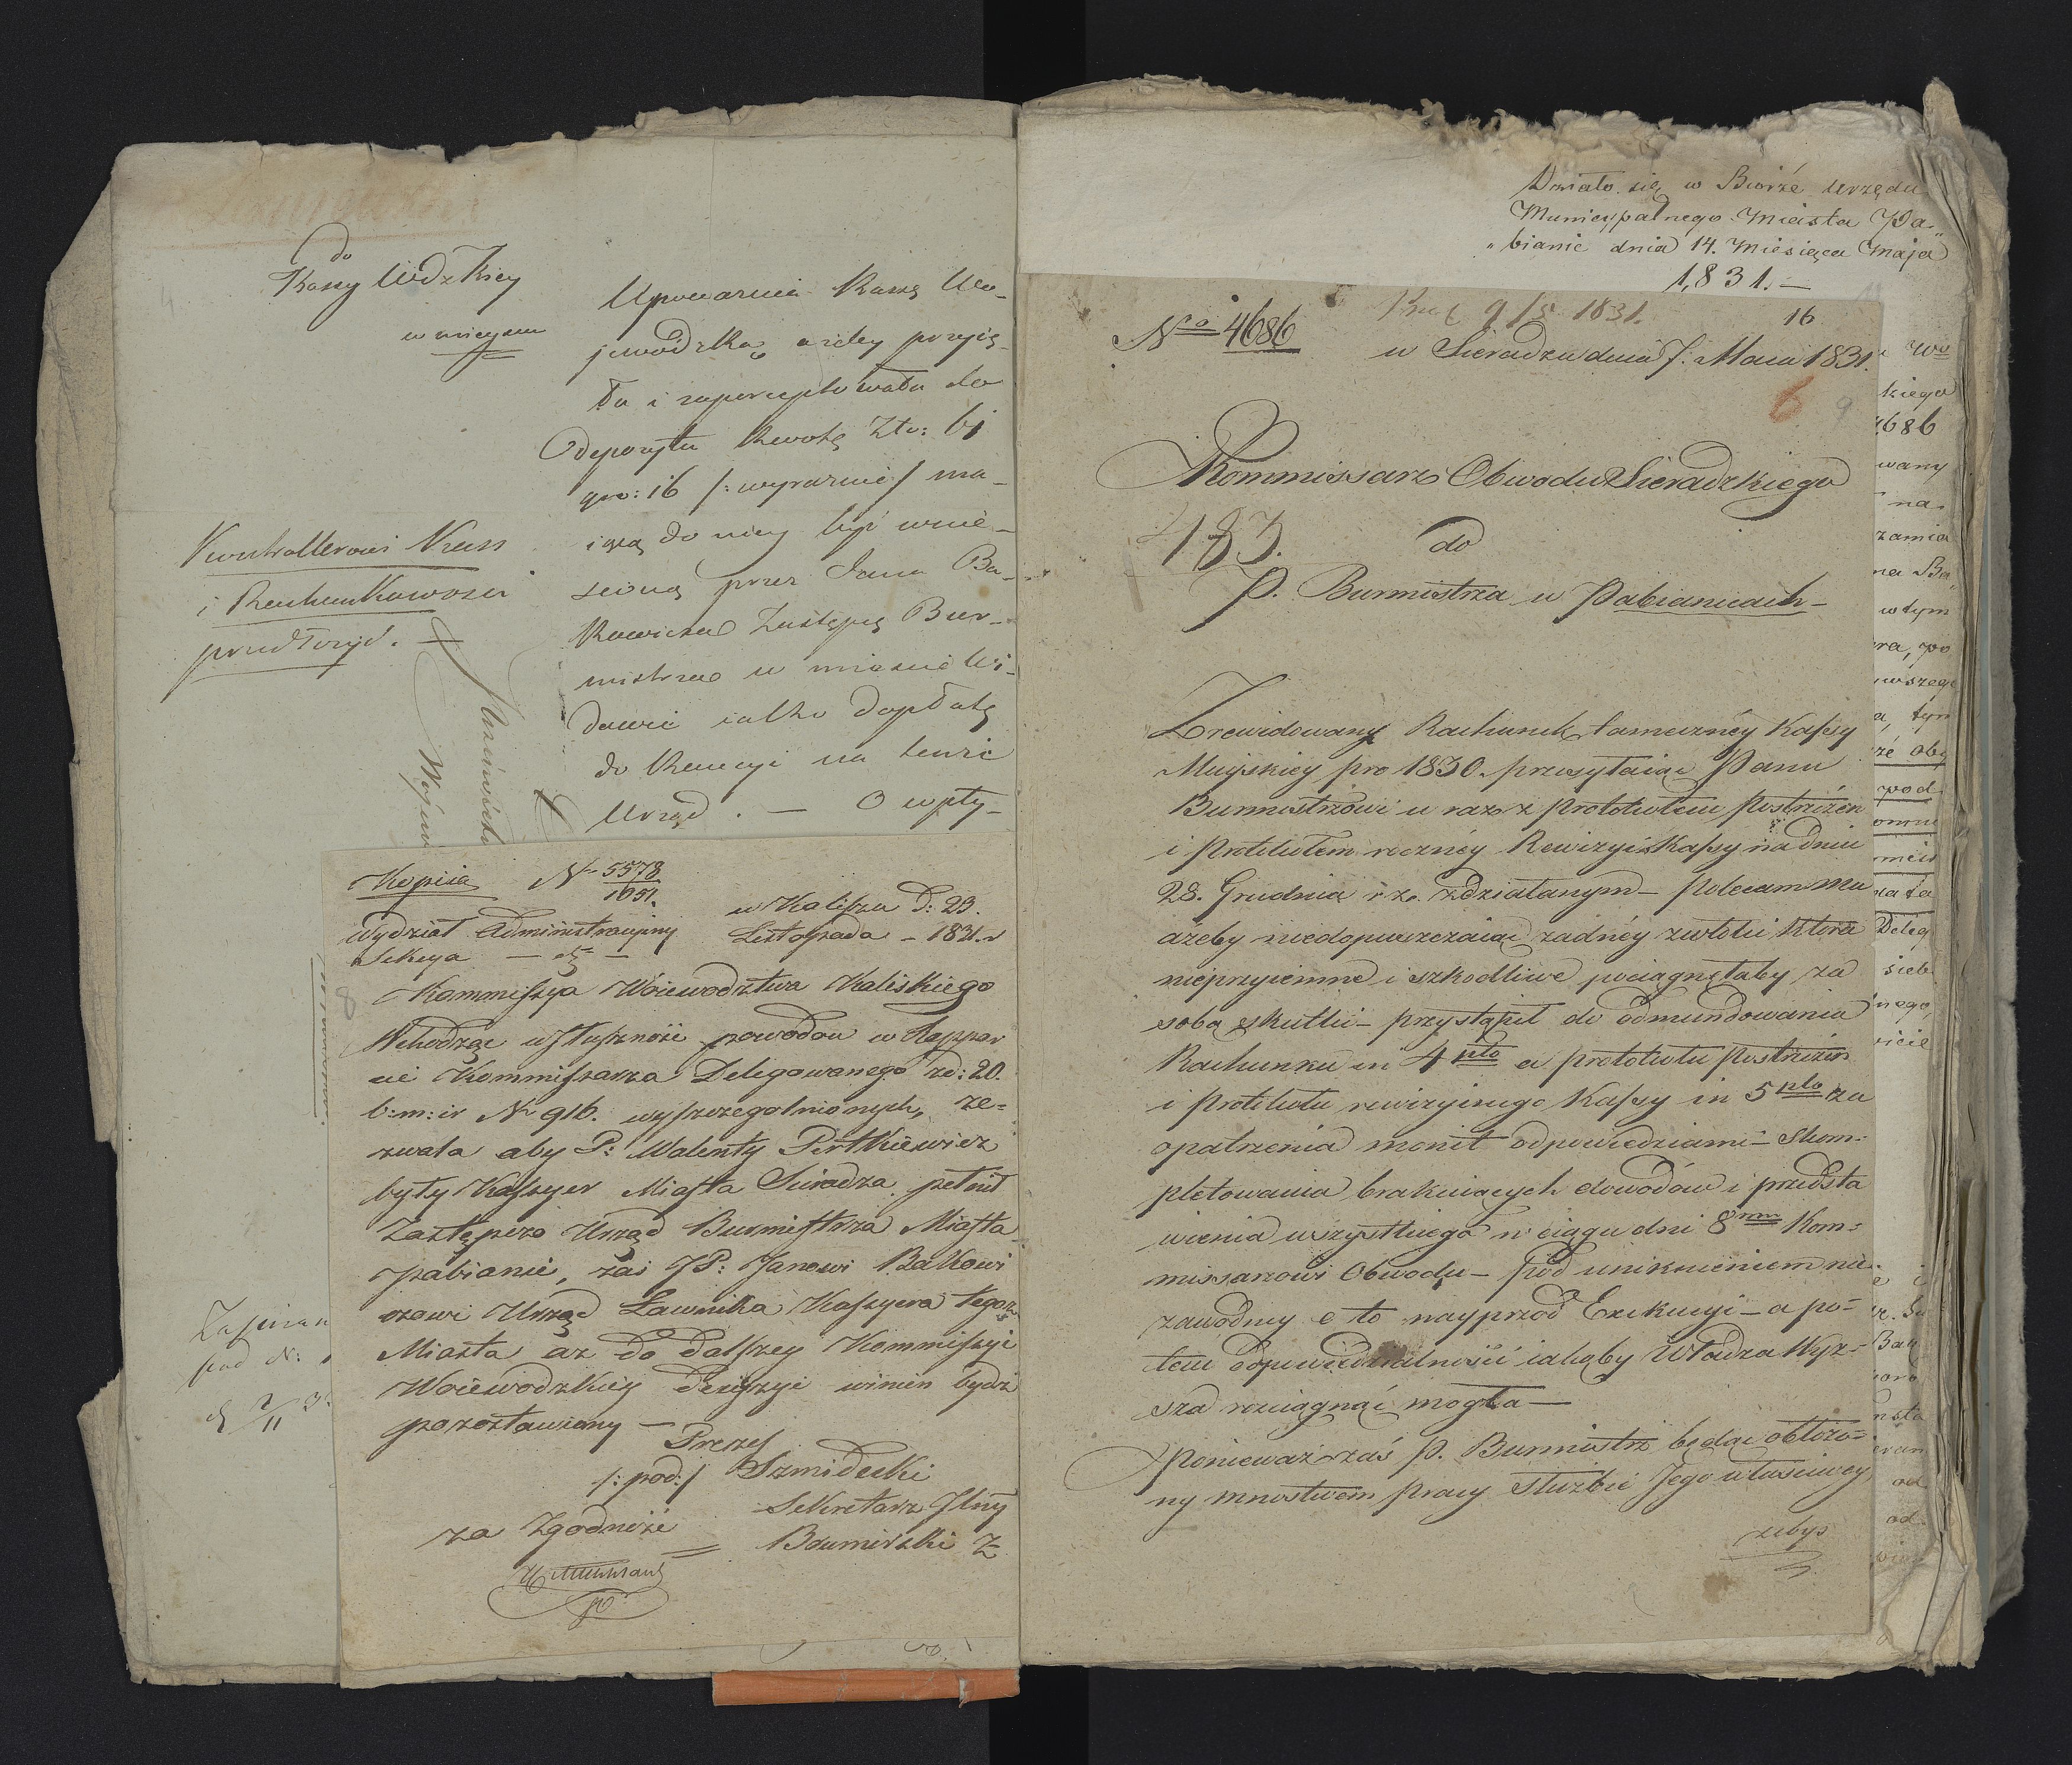 do
Kassy Wdzkiey
w mieyscu
Kontrollerowi Kass
i Rachunkowości
przedłożyć.
Upoważnia Kassę Wo-
jewódzką ażeby przyię-
ła i zapercyptowała do
Depozytu kwotę Złt: 61
gro: 16 /: wyraznie / ma-
iącą do niey być wnie-
sioną przez Jana Ba-
kowicza Zastępcę Bur-
mistrza w mieście Wi-
dawie iako dopłatę
do Kaucyi na tenże
Urząd. — O wpły-
pod N:
Kopiia N 5578
1831.
Wydział Administracyiny
Sekcya
w Kaliszu D: 23.
Listopada - 1831. r
Kommissya Woiewodztwa Kaliskiego
Wchodząc w słuszność powodów w Rappor
cie Kommissarza Delegowanego zd: 20.
b: m: ir N 916. wyszczegolnionych, ze=
zwala aby P: Walenty Pertkiewicz
były Kassyer Miasta Sieradza pełnił
Zastępczo Urząd Burmistrza Miasta
Pabianic, zaś JP: Janowi Bakowi
czowi Urząd Ławnika Kassyera tegoz
Miasta az do dalszey Kommissyi
Woiewodzkiey Decyzyi winien bydź
pozostawiony —
Prezes
/: pod: / Szmidecki
Sekretarz Jlny
za Zgodność = Boumirski Z
Działo się w Biórze Urzędu
Municypalnego Miasta Pa-
"bianic dnia 14. Miesiąca Maja
1,831. —
9/5 1831.
16
No 4686
w Sieradzu dnia 7. Maia 1831.
6 9
Kommissarz Obwodu Sieradzkiego
183.
do
P. Burmistrza w Pabianicach —
Zrewidowany Rachunek tameczney Kassy
Mieyskiey pro 1830. przesyłaiąc Panu
Burmistrzowi w raz z protokołem postrzeżeń
i protokołem roczney Rewizyi Kassy na dniu
28. Grudnia r z. zdziałanym — polecam Mu
ażeby niedopuszczaiąc żadnéy zwłoki która
nieprzyiemne i szkodliwe pociągnęłaby za
sobą skutki — przystąpił do odmundowania
Rachunku in 4 plo a protokołu postrzeżeń
i protokołu rewizyinego Kassy in 5 plo za
opatrzenia monit odpowiedziami — skom=
pletowania brakuiących dowodów i przedsta
wienia wszystkiego w ciągu dni 8 mm Kom=
missarzowi Obwodu — pod uniknieniem nie-
zawodney o to nayprzód Exekucyi — a po=
tem odpowiedzialność iakąby Władza Wyż=
sza rozciągnąć mogła —
Ponieważ zaś P. Burmistrz będąc obłożo=
ny mnostwem pracy służbie Jego właściwey
żeby